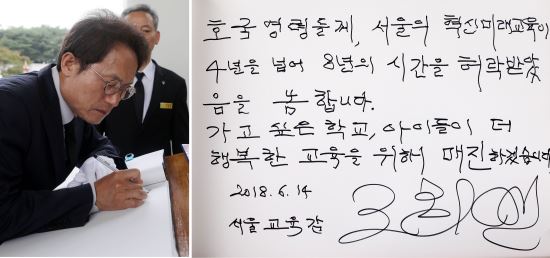 호국영령들께, 서울의 혁신미래교육이
4년을 넘어 8년의 시간을 허락받았
음을 놈 합니다.
가고 싶은 학교, 아이들이 더
행복한 교육을 위해 매진하겠습니다
2018.6.14
서울교육감
조희연